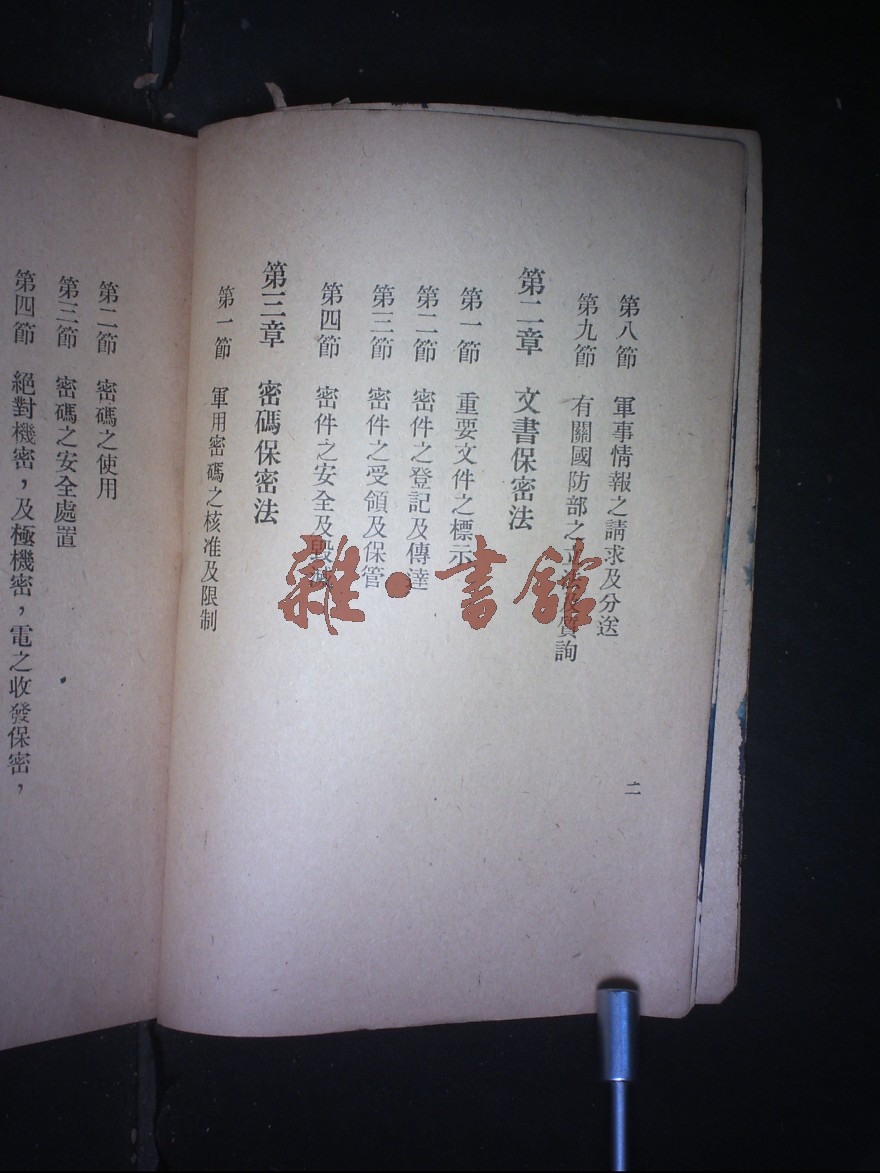 第八節 軍事情報之請求及分送
第九節 有關國防部之立質詢
第二章 文書保密法
第一節 重要文件之標示
第二節 密件之登記及傳達
第三節 密件之受領及保管
第四節 密件之安全及毀滅
第三章 密碼保密法
第一節 軍用密碼之核准及限制
二
第二節 密碼之使用
第三節 密碼之安全處置
第四節 絕對機密，及極機密，電之收發保密，
雜·書館